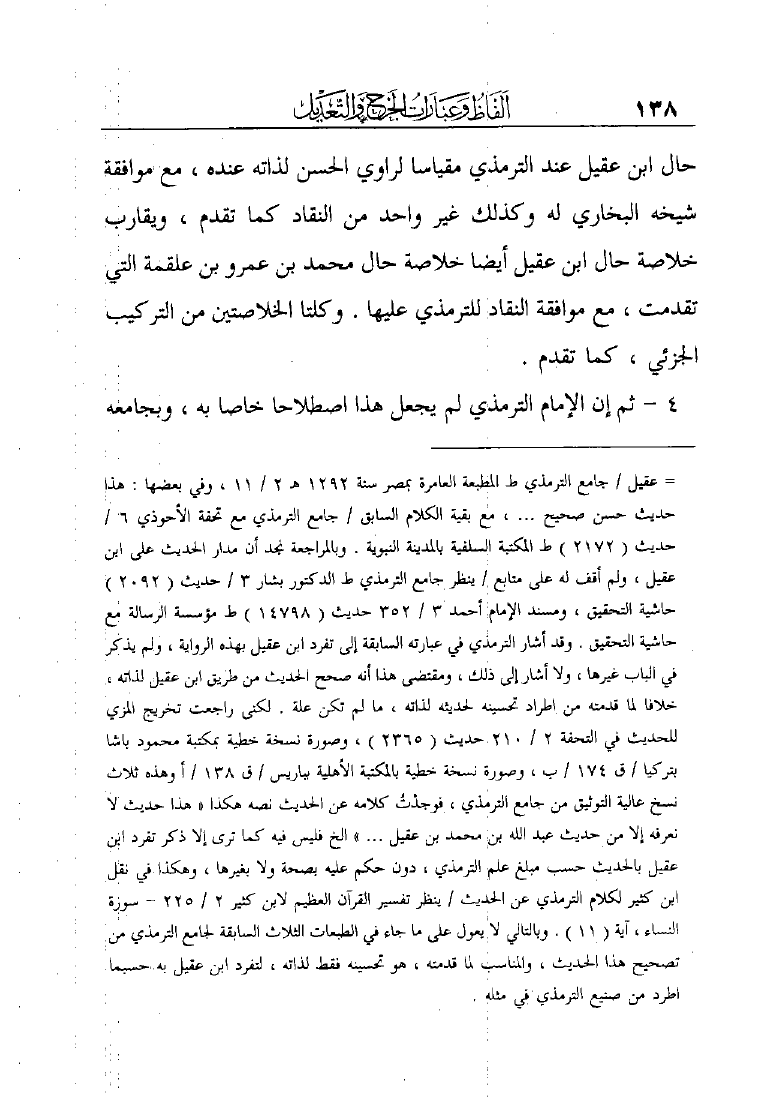 ١٣٨ ألفاظ وعبارات الجرح والتعديل
حال ابن عقيل عند الترمذي مقياسا لراوي الحسن لذاته عنده ، مع موافقة
شيخه البخاري له وكذلك غير واحد من النقاد كما تقدم ، ويقارب
خلاصة حال ابن عقيل أيضا خلاصة حال محمد بن عمرو بن علقمة التي
تقدمت ، مع موافقة النقاد للترمذي عليها . وكلتا الخلاصتين من التركيب
الجزئي ، كما تقدم .
٤ - ثم إن الإمام الترمذي لم يجعل هذا اصطلاحا خاصا به ، وبجامعه
= عقيل / جامع الترمذي ط المطبعة العامرة بمصر سنة ١٢٩٢ هـ ٢ / ١١ ، وفي بعضها : هذا
حديث حسن صحيح ... ، مع بقية الكلام السابق / جامع الترمذي مع تحفة الأحوذي ٦ /
حديث ( ٢١٧٢ ) ط المكتبة السلفية بالمدينة النبوية . وبالمراجعة نجد أن مدار الحديث على ابن
عقيل ، ولم أقف له على متابع / ينظر جامع الترمذي ط الدكتور بشار ٣ / حديث ( ٢٠٩٢ )
حاشية التحقيق ، ومسند الإمام أحمد ٣ / ٣٥٢ حديث ( ١٤٧٩٨ ) ط مؤسسة الرسالة مع
حاشية التحقيق . وقد أشار الترمذي في عبارته السابقة إلى تفرد ابن عقيل بهذه الرواية ، ولم يذكر
في الباب غيرها ، ولا أشار إلى ذلك ، ومقتضى هذا أنه صحح الحديث من طريق ابن عقيل لذاته ،
خلافا لما قدمته من اطراد تحسينه لحديثه لذاته ، ما لم تكن علة . لكنى راجعت تخريج المزي
للحديث في التحفة ٢ / ٢١٠ حديث ( ٢٣٦٥ ) ، وصورة نسخة خطية بمكتبة محمود باشا
بتركيا / ق ١٧٤ / ب ، وصورة نسخة خطية بالمكتبة الأهلية بباريس / ق ١٣٨ / أ وهذه ثلاث
نسخ عالية التوثيق من جامع الترمذي ، فوجدتُ كلامه عن الحديث نصه هكذا « هذا حديث لا
نعرفه إلا من حديث عبد الله بن محمد بن عقيل ... » الخ فليس فيه كما ترى إلا ذكر تفرد ابن
عقيل بالحديث حسب مبلغ علم الترمذي ، دون حكم عليه بصحة ولا بغيرها ، وهكذا في نقل
ابن كثير لكلام الترمذي عن الحديث / ينظر تفسير القرآن العظيم لابن كثير ٢ / ٢٢٥ - سورة
النساء ، آية ( ١١ ) . وبالتالي لا يعول على ما جاء في الطبعات الثلاث السابقة لجامع الترمذي من
تصحيح هذا الحديث ، والمناسب لما قدمته ، هو تحسينه فقط لذاته ، لتفرد ابن عقيل به حسبما
اطرد من صنيع الترمذي في مثله .